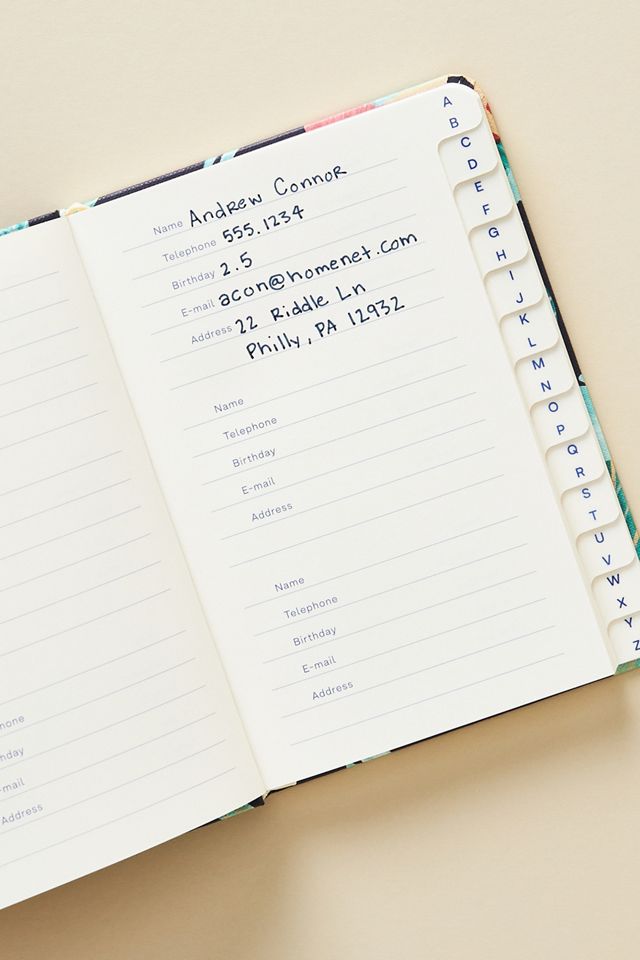 Name Andrew Connor
Telephone 555.1234
Birthday 2.5
E-mail acon@homenet.com
Address 22 Riddle Ln
Philly, PA 12932
Name
Telephone
Birthday
E-mail
Address
Name
Telephone
Birthday
E-mail
Address
A
B
C
D
E
F
G
H
I
J
K
L
M
N
O
P
Q
R
S
T
U
V
W
X
Y
Z
Address